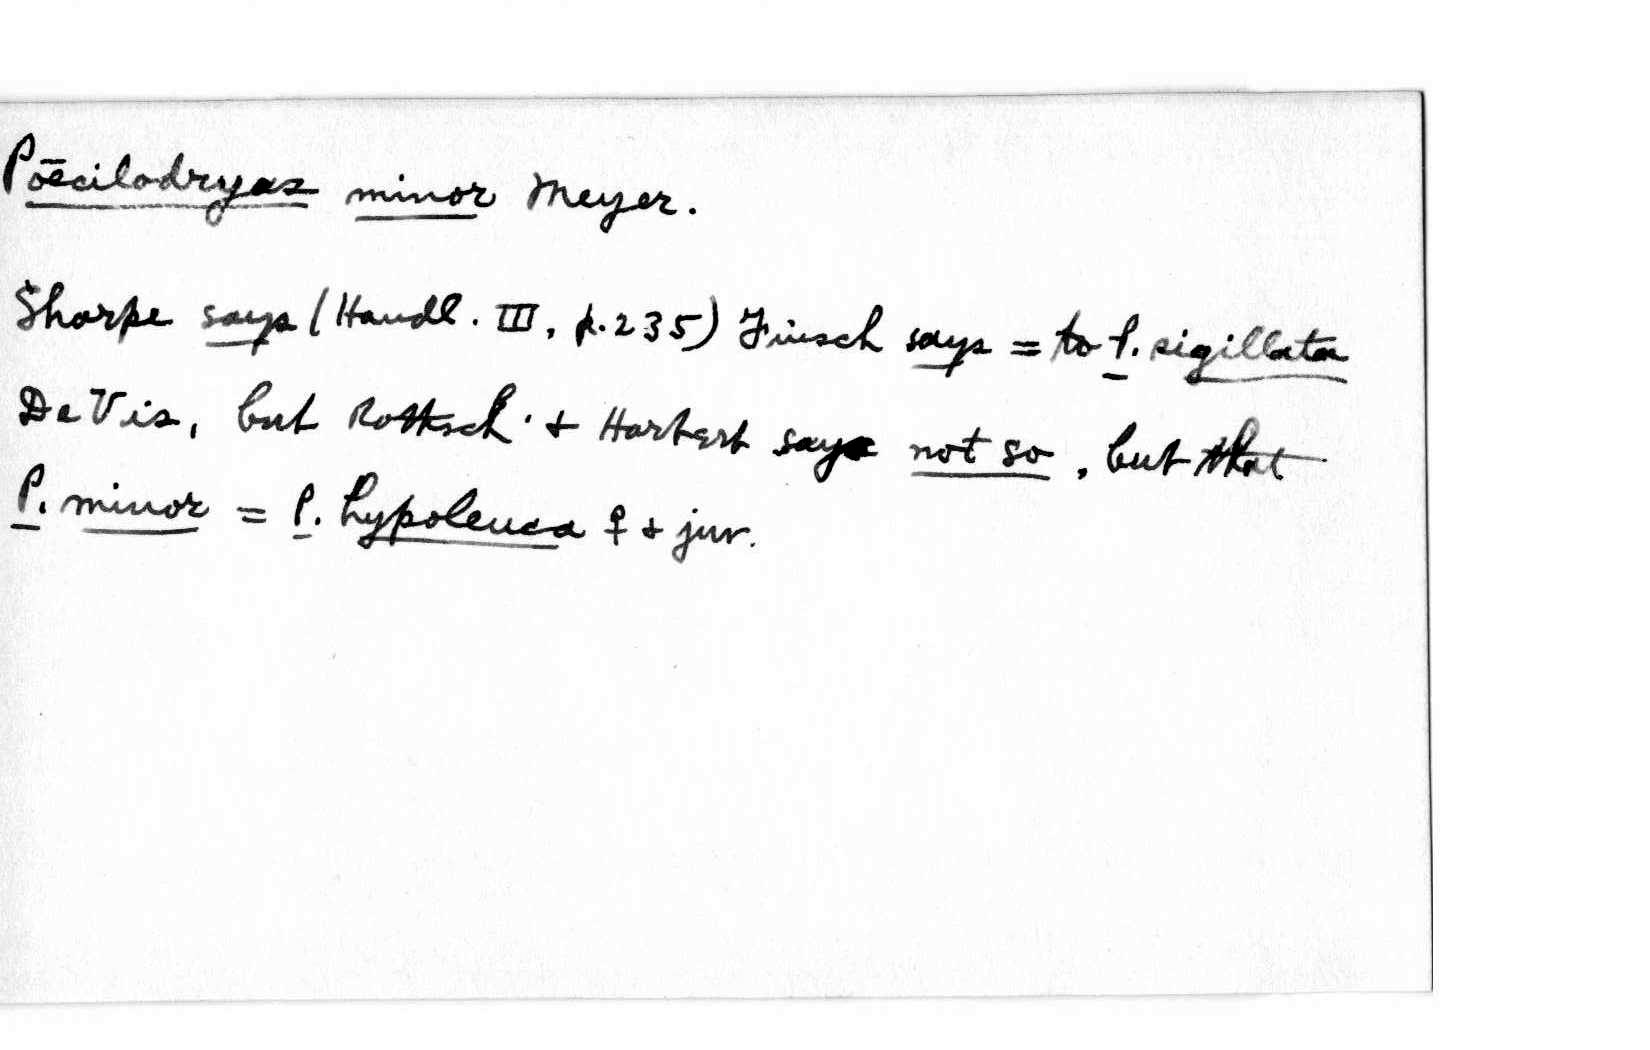 Pōēcilodryas minor Meyer.
Sharpe says (Handl. III, p. 235) Finsch says = to P. sigillata
De Vis, but Rothsch. & Hartert say not so, but that
P. minor = P. hypoleuca ♀ & juv.